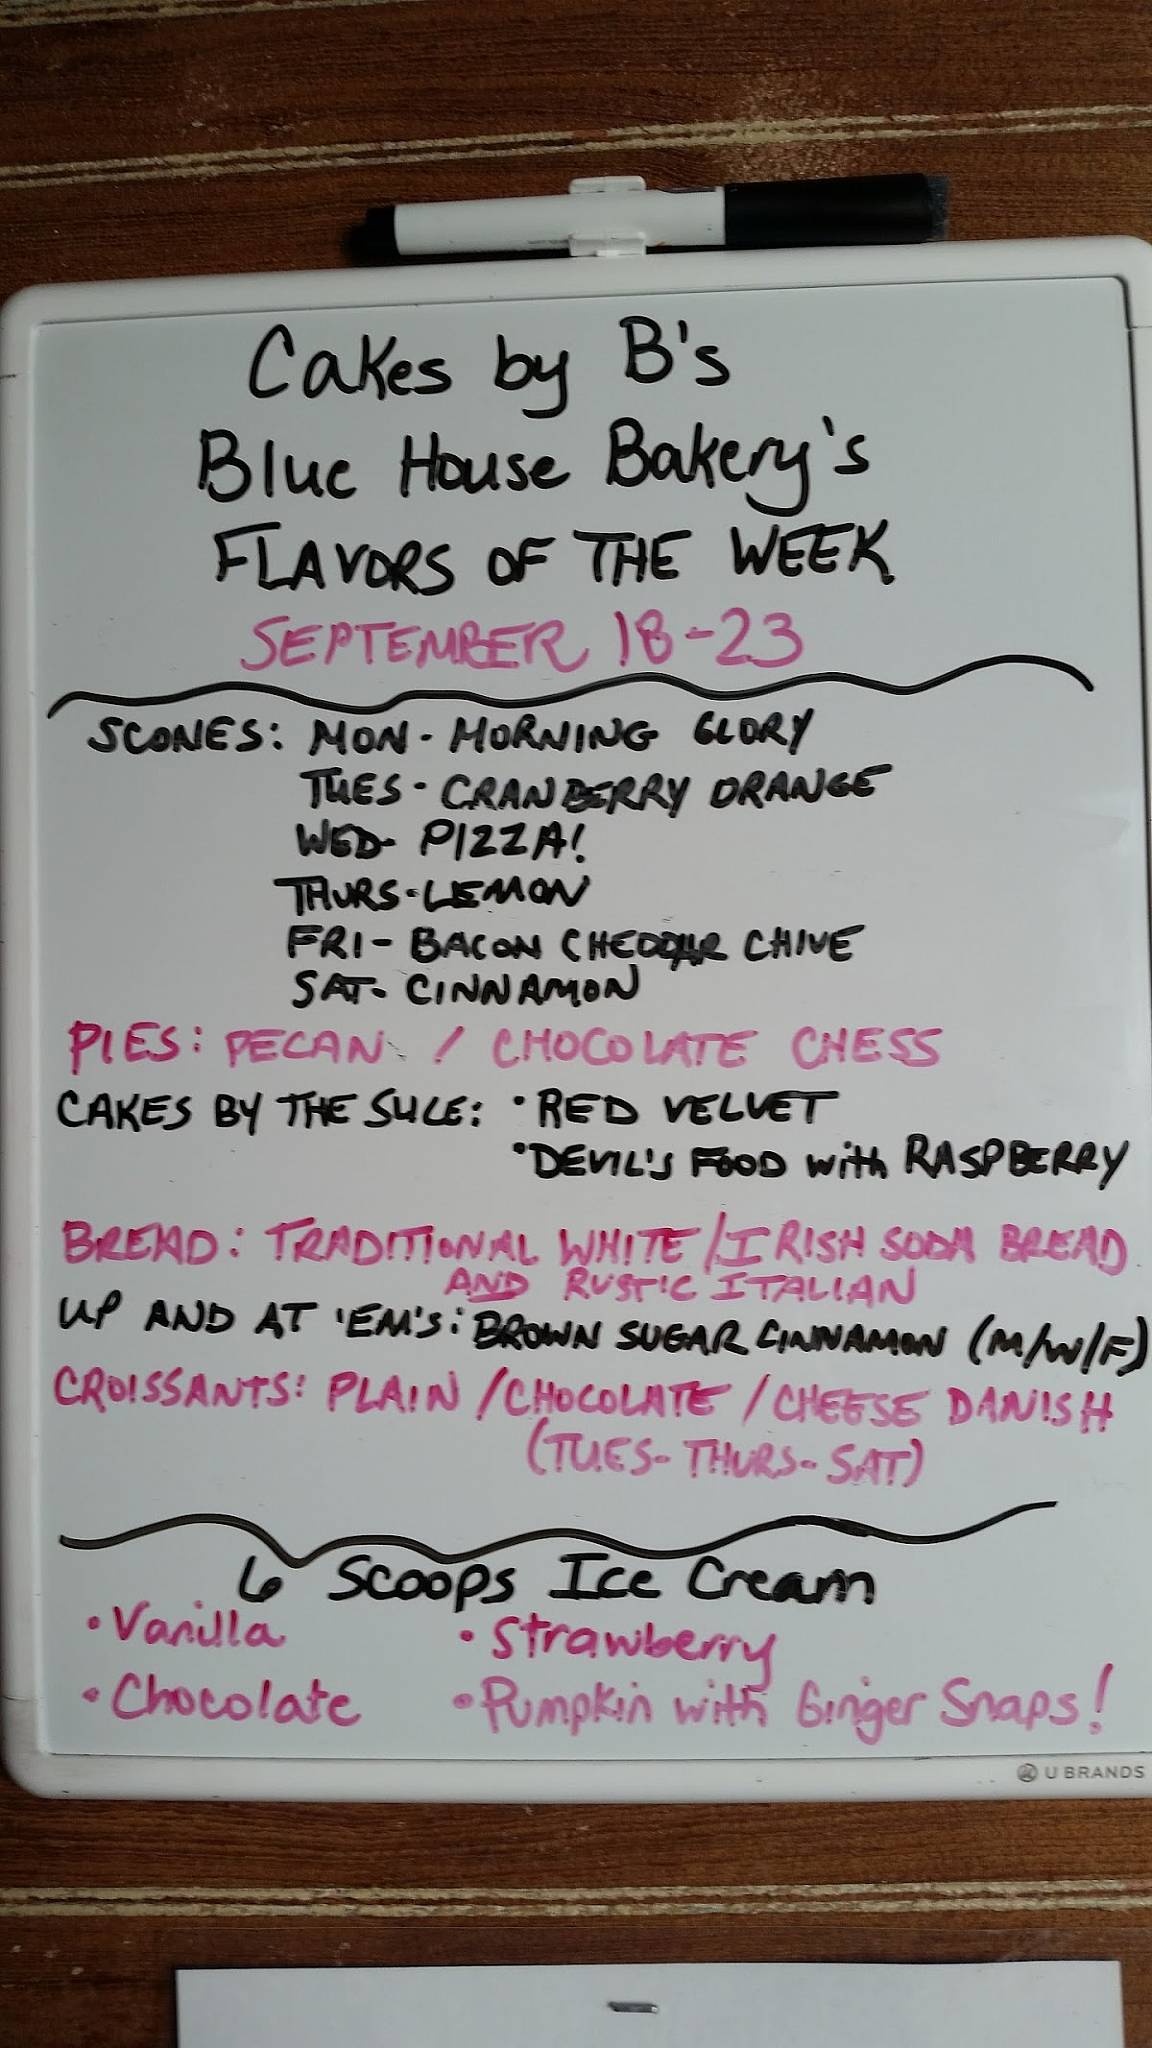 Cakes by B's
Blue House Bakery's
FLAVORS OF THE WEEK
SEPTEMBER 18-23
SCONES: MON- MORNING GLORY
TUES- CRANBERRY ORANGE
WED- PIZZA!
THURS- LEMON
FRI- BACON CHEDDAR CHIVE
SAT- CINNAMON
PIES: PECAN / CHOCOLATE CHESS
CAKES BY THE SLICE: • RED VELVET
• DEVIL'S FOOD with RASPBERRY
BREAD: TRADITIONAL WHITE/IRISH SODA BREAD
AND RUSTIC ITALIAN
UP AND AT 'EM'S: BROWN SUGAR CINNAMON (M/W/F)
CROISSANTS: PLAIN /CHOCOLATE /CHEESE DANISH
(TUES- THURS- SAT)
6 Scoops Ice Cream
• Vanilla • Strawberry
• Chocolate • Pumpkin with Ginger Snaps!
U BRANDS